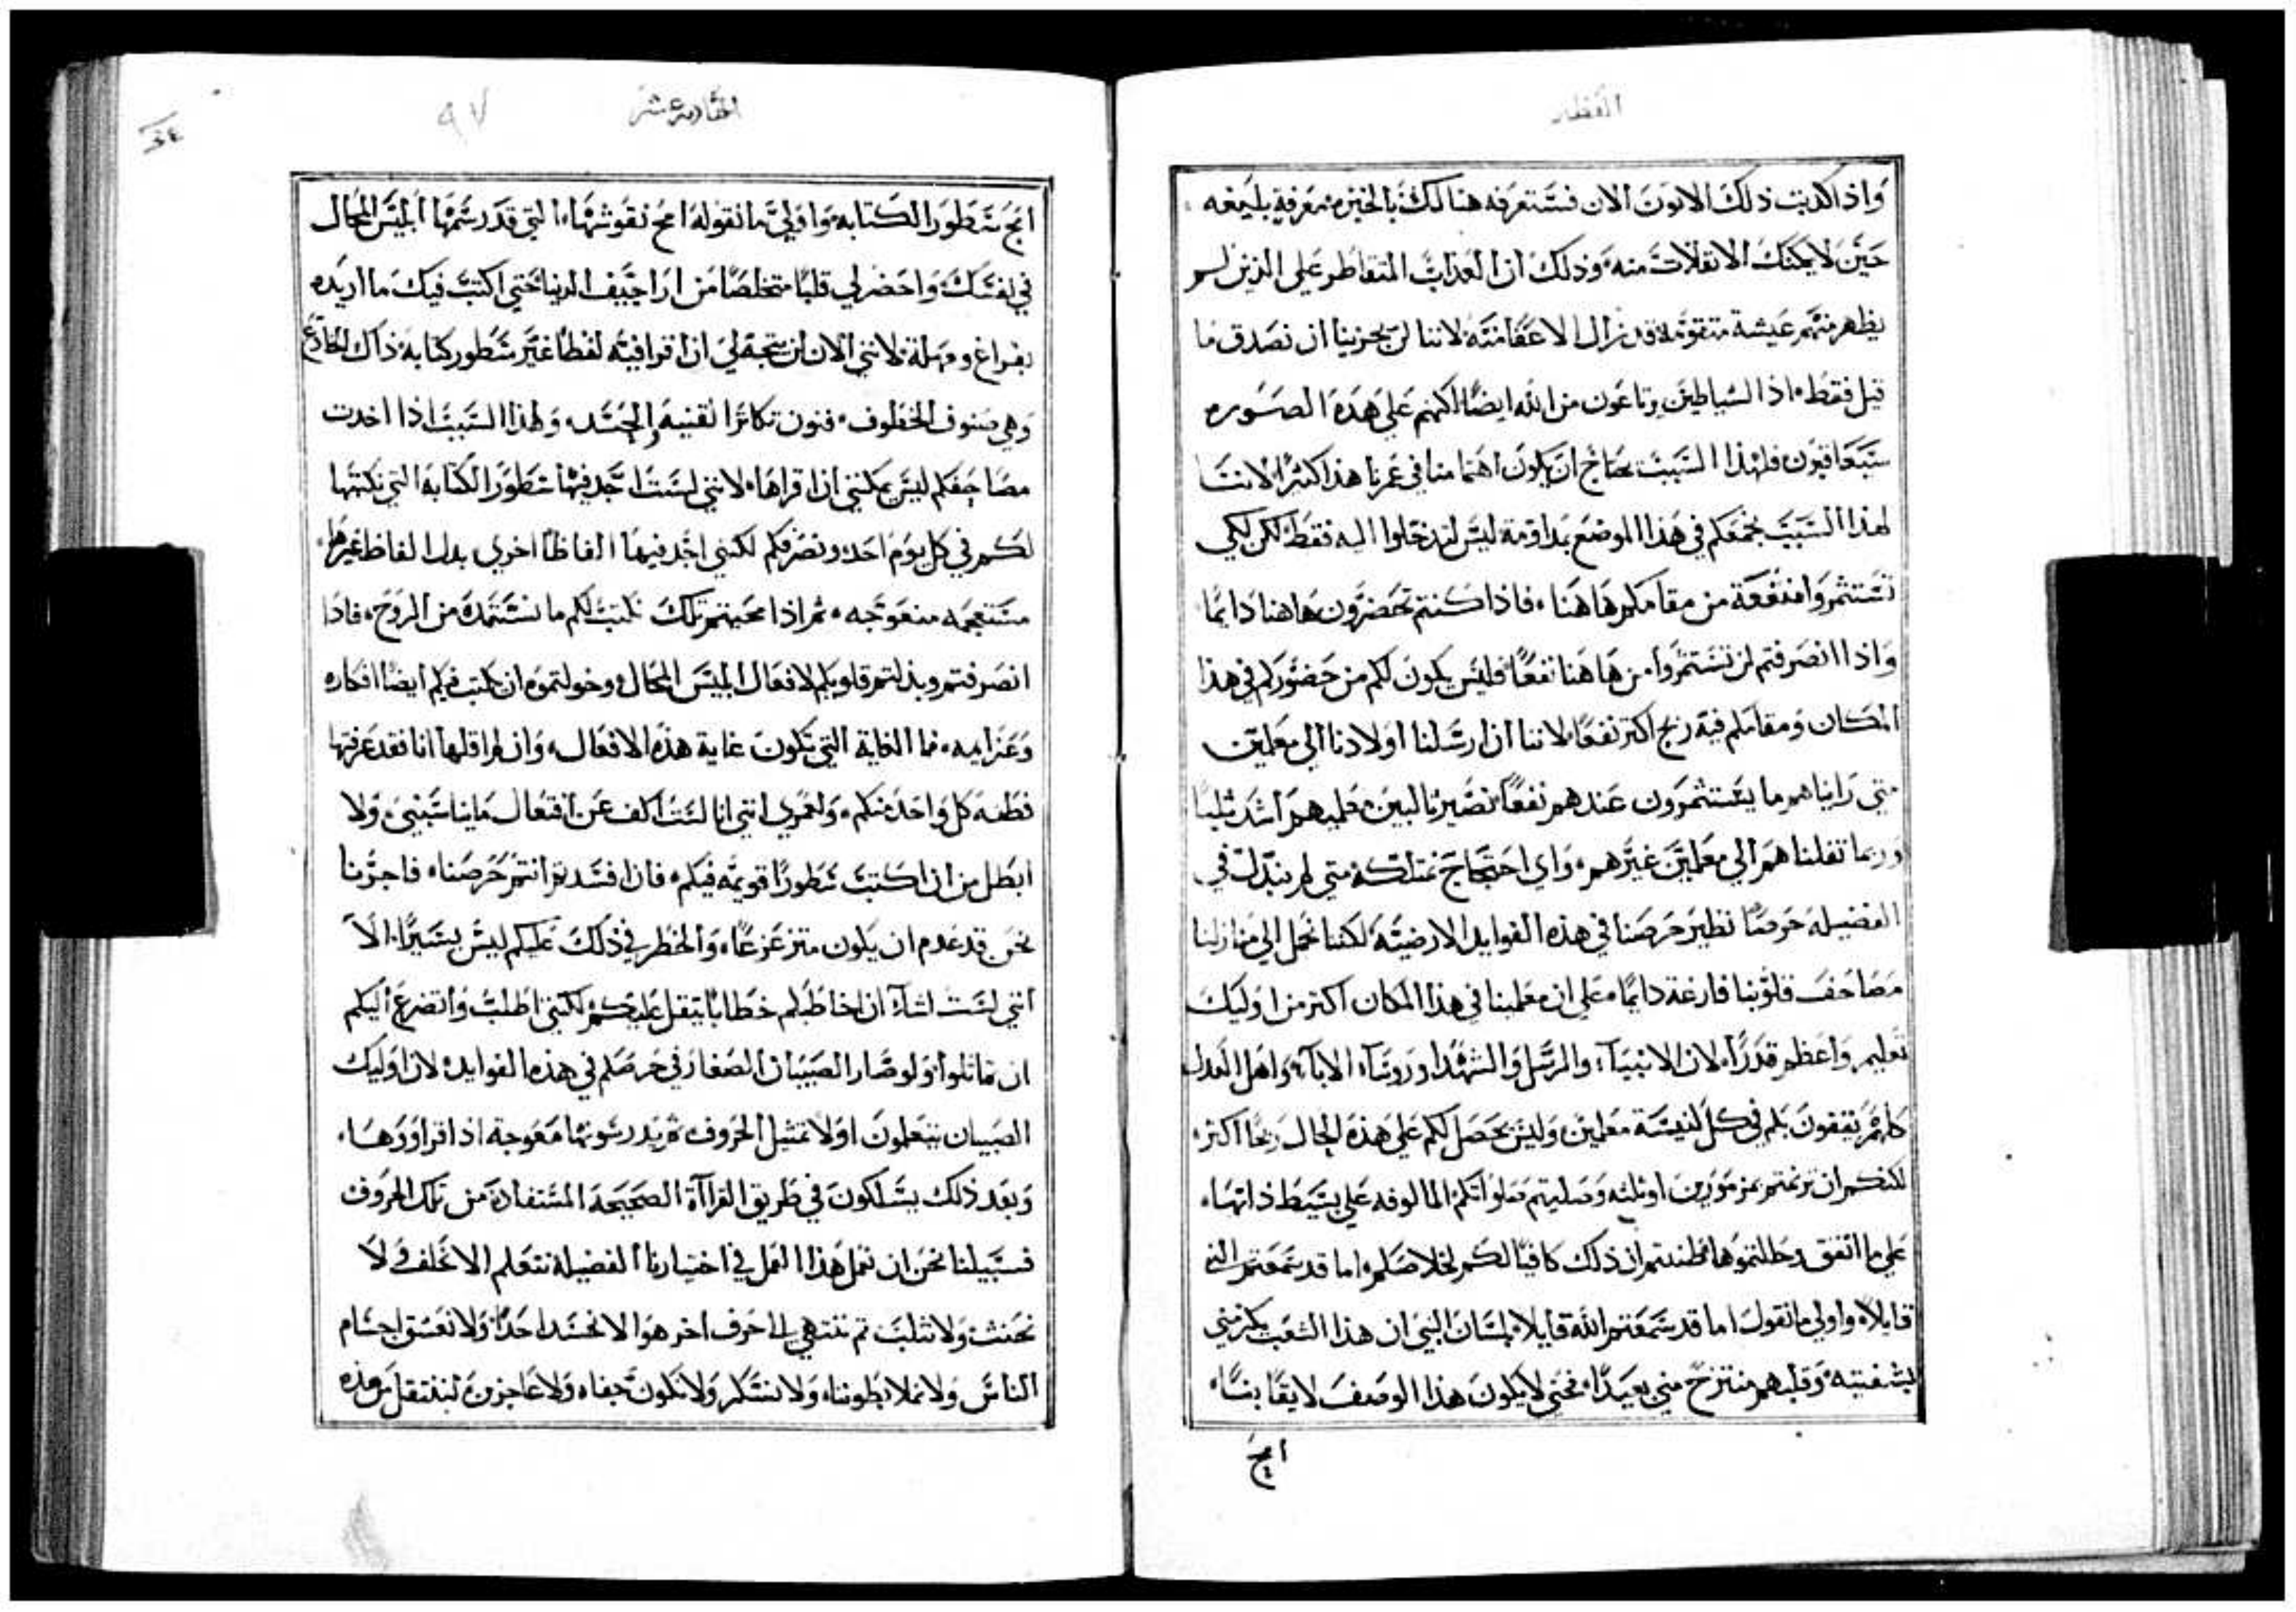 العظه
واذا كذبت ذلك الاتون الان فستعرفه هنالك بالخبره معرفة بليغه
حين لا يمكنك الانفلات منه وذلك ان العذاب المتقاطر على الذين لم
يظهر منهم عيشة متقومة قد نزال الاعفا منته لاننا لن يجزينا ان نصدق ما
قيل فقط اذ الشياطين يرتاعون من الله ايضًا لكنهم على هذه الصوره
سيعاقبون فلهذا السبب نحتاج ان يكون اهتمامنا في عمرنا هذا كثيرًا لاننا
لهذا السبب نجمعكم في هذا الموضع بمداومة ليس لتدخلوا اليه فقط لكن لكي
تستثمروا منفعة من مقامكم هاهنا فاذا كنتم تحضرون هاهنا دايمًا
واذا انصرفتم لن تستثمروا من هاهنا نفعًا فليس يكون لكم من حضوركم في هذا
المكان ومقامكم فيه ربح اكثر نفعًا لاننا ان ارسلنا اولادنا الى معلمين
متى رايناهم ما يستثمرون عندهم نفعًا نصير ثالبين معلميهم اشد ثلبًا
وربما نقلناهم الى معلمين غيرهم واي احتجاج نمتلكه متى لم نبذل في
الفضيله حرصًا نظير حرصنا في هذه الفوايد الارضية لكننا نحمل الى منازلنا
مصاحف قلوبنا فارغة دايمًا على ان معلمينا في هذا المكان اكثر من اوليك
تعليم واعظم قدرًا لان الانبيآء والرسل والشهدا وروسآء الابآء واهل العدل
كلهم يقفون بكم في كل كنيسة معلمين وليس يحصل لكم على هذه الحال ربحًا اكثر
لكنكم ان ترنمتم بمزمورين او ثلثه وصليتم صلواتكم المالوفه على بسيط ذاتها
على ما اتفق وحللتموها ظننتم ان ذلك كافيًا لكم لخلاصكم اما قد سمعتم النبي
قايلاً واولى ما نقول اما قد سمعتم الله قايلاً بلسان النبي ان هذا الشعب يكرمني
بشفتيه وقلبهم منتزح مني بعيدًا فحتى لا يكون هذا الوصف لايقًا بنا
امح
الحاديه عشر
٩٧
امح سطور الكتابه واولى ما نقوله امح نقوشها التي قد رسمها ابليس المحال
في نفسك واحضر لي قلبًا متخلصًا من اراجيف الدنيا حتى اكتب فيك ما اريده
بفراغ ومهلة لانني الان لن يتجه لي ان اقرا فيه لفظًا غير سطور كتابة ذاك الخادع
وهي صنوف الخطوف فنون تكاثر القنيه والحسد ولهذا السبب اذا اخذت
مصاحفكم ليس يمكنني ان اقراها لانني لست اجد فيها سطور الكتابة التي نكتبها
لكم في كل يوم احد ونصرفكم لكنني اجد فيها الفاظًا اخرى بدل الفاظ غيرها
مستعجمه متعوجه ثم اذا محيتم تلك نكتب لكم ما نستمده من الروح فاذا
انصرفتم وبذلتم قلوبكم لافعال ابليس المحال وخولتموه ان يكتب فيكم ايضًا افكاره
وعزايمه فما الغاية التي تكون غاية هذه الافعال وان لم اقلها انا فقد عرفتها
فطنة كل واحد منكم ولعمري انني انا لست اكف عن افتعال ما يناسبني ولا
ابطل من ان اكتب سطورًا قويمه فيكم فان افسدتم انتم حرصنا فاجرنا
نحن قد عدم ان يكون متزعزعًا والخطر في ذلك عليكم ليس يسيرًا الا
انني لست اشاء ان اخاطبكم خطابًا يثقل عليكم لكنني اطلب واتضرع اليكم
ان تماثلوا ولو صار الصبيان الصغار في حرصكم في هذه الفوايد لان اوليك
الصبيان يتعلمون اولاً تمثيل الحروف ثم يدرسونها معوجة اذا قرا وردها
وبعد ذلك يسلكون في طريق القراآة الصحيحة المستفادة من تلك الحروف
فسبيلنا نحن ان نعمل هذا العمل في اختيارنا الفضيلة نتعلم الا نحلف ولا
نحنث ولا نثلب ثم ننتهي الى حرف اخر هو الا نحسد احدًا ولا نعشق اجسام
الناس ولا نملا بطوننا ولا نسكر ولا نكون جفاه ولا عاجزين لننتقل من هذه